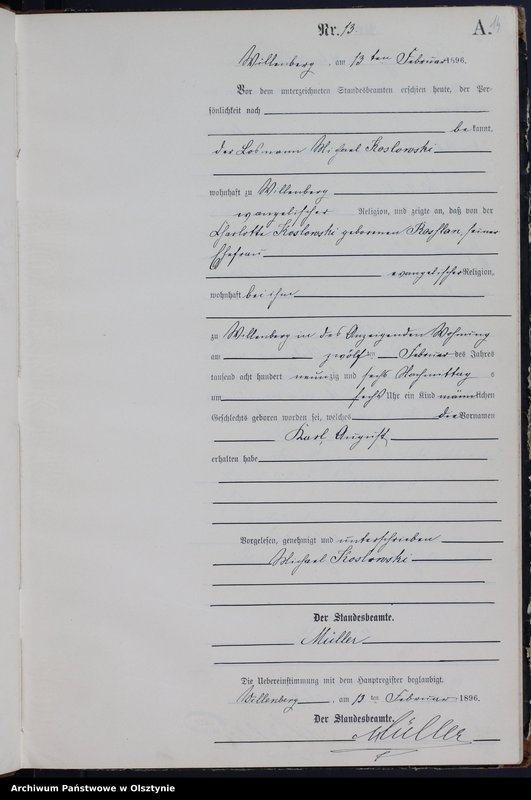 Nr. 13.
A. 14
Willenberg, am 13 ten Februar 1896.
Vor dem unterzeichneten Standesbeamten erschien heute, der Per-
sönlichkeit nach
bekannt,
der Losmann Michael Koslowski
wohnhaft zu Willenberg
evangelischer Religion, und zeigte an, daß von der
Charlotte Koslowski geborenen seiner
Ehefrau
evangelischer Religion,
wohnhaft bei ihm
zu Willenberg in des Anzeigenden Wohnung
am zwölften Februar des Jahres
tausend acht hundert neunzig und sechs Nachmittags
um sechs Uhr ein Kind männlichen
Geschlechts geboren worden sei, welches die Vornamen
Karl, August
erhalten habe
Vorgelesen, genehmigt und unterschrieben
Michael Koslowski
Der Standesbeamte.
Müller
Die Uebereinstimmung mit dem Hauptregister beglaubigt.
Willenberg, am 13 ten Februar 1896.
Der Standesbeamte.
Müller
Archiwum Państwowe w Olsztynie